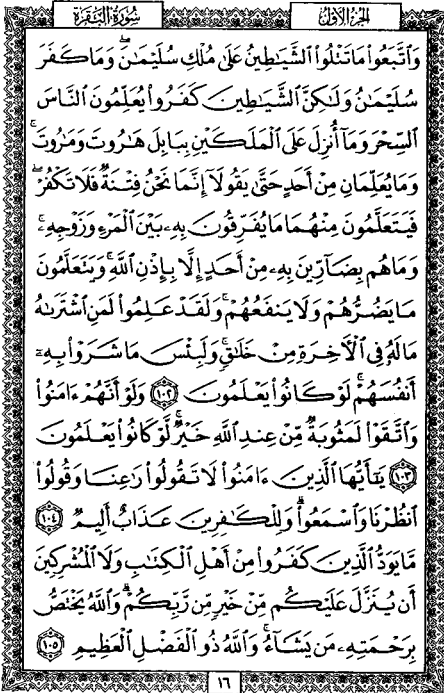 سُورَةُ البَقَرَةِ الجُزءُ الأوَّلُ
وَٱتَّبَعُوا۟ مَا تَتْلُوا۟ ٱلشَّيَٰطِينُ عَلَىٰ مُلْكِ سُلَيْمَٰنَ ۖ وَمَا كَفَرَ
سُلَيْمَٰنُ وَلَٰكِنَّ ٱلشَّيَٰطِينَ كَفَرُوا۟ يُعَلِّمُونَ ٱلنَّاسَ
ٱلسِّحْرَ وَمَآ أُنزِلَ عَلَى ٱلْمَلَكَيْنِ بِبَابِلَ هَٰرُوتَ وَمَٰرُوتَ ۚ
وَمَا يُعَلِّمَانِ مِنْ أَحَدٍ حَتَّىٰ يَقُولَآ إِنَّمَا نَحْنُ فِتْنَةٌ فَلَا تَكْفُرْ ۖ
فَيَتَعَلَّمُونَ مِنْهُمَا مَا يُفَرِّقُونَ بِهِۦ بَيْنَ ٱلْمَرْءِ وَزَوْجِهِۦ ۚ
وَمَا هُم بِضَآرِّينَ بِهِۦ مِنْ أَحَدٍ إِلَّا بِإِذْنِ ٱللَّهِ ۚ وَيَتَعَلَّمُونَ
مَا يَضُرُّهُمْ وَلَا يَنفَعُهُمْ ۚ وَلَقَدْ عَلِمُوا۟ لَمَنِ ٱشْتَرَىٰهُ
مَا لَهُۥ فِى ٱلْءَاخِرَةِ مِنْ خَلَٰقٍ ۚ وَلَبِئْسَ مَا شَرَوْا۟ بِهِۦٓ
أَنفُسَهُمْ ۚ لَوْ كَانُوا۟ يَعْلَمُونَ ١٠٢ وَلَوْ أَنَّهُمْ ءَامَنُوا۟
وَٱتَّقَوْا۟ لَمَثُوبَةٌ مِّنْ عِندِ ٱللَّهِ خَيْرٌ ۖ لَّوْ كَانُوا۟ يَعْلَمُونَ
١٠٣ يَٰٓأَيُّهَا ٱلَّذِينَ ءَامَنُوا۟ لَا تَقُولُوا۟ رَٰعِنَا وَقُولُوا۟
ٱنظُرْنَا وَٱسْمَعُوا۟ ۗ وَلِلْكَٰفِرِينَ عَذَابٌ أَلِيمٌ ١٠٤
مَّا يَوَدُّ ٱلَّذِينَ كَفَرُوا۟ مِنْ أَهْلِ ٱلْكِتَٰبِ وَلَا ٱلْمُشْرِكِينَ
أَن يُنَزَّلَ عَلَيْكُم مِّنْ خَيْرٍ مِّن رَّبِّكُمْ ۗ وَٱللَّهُ يَخْتَصُّ
بِرَحْمَتِهِۦ مَن يَشَآءُ ۚ وَٱللَّهُ ذُو ٱلْفَضْلِ ٱلْعَظِيمِ ١٠٥
١٦